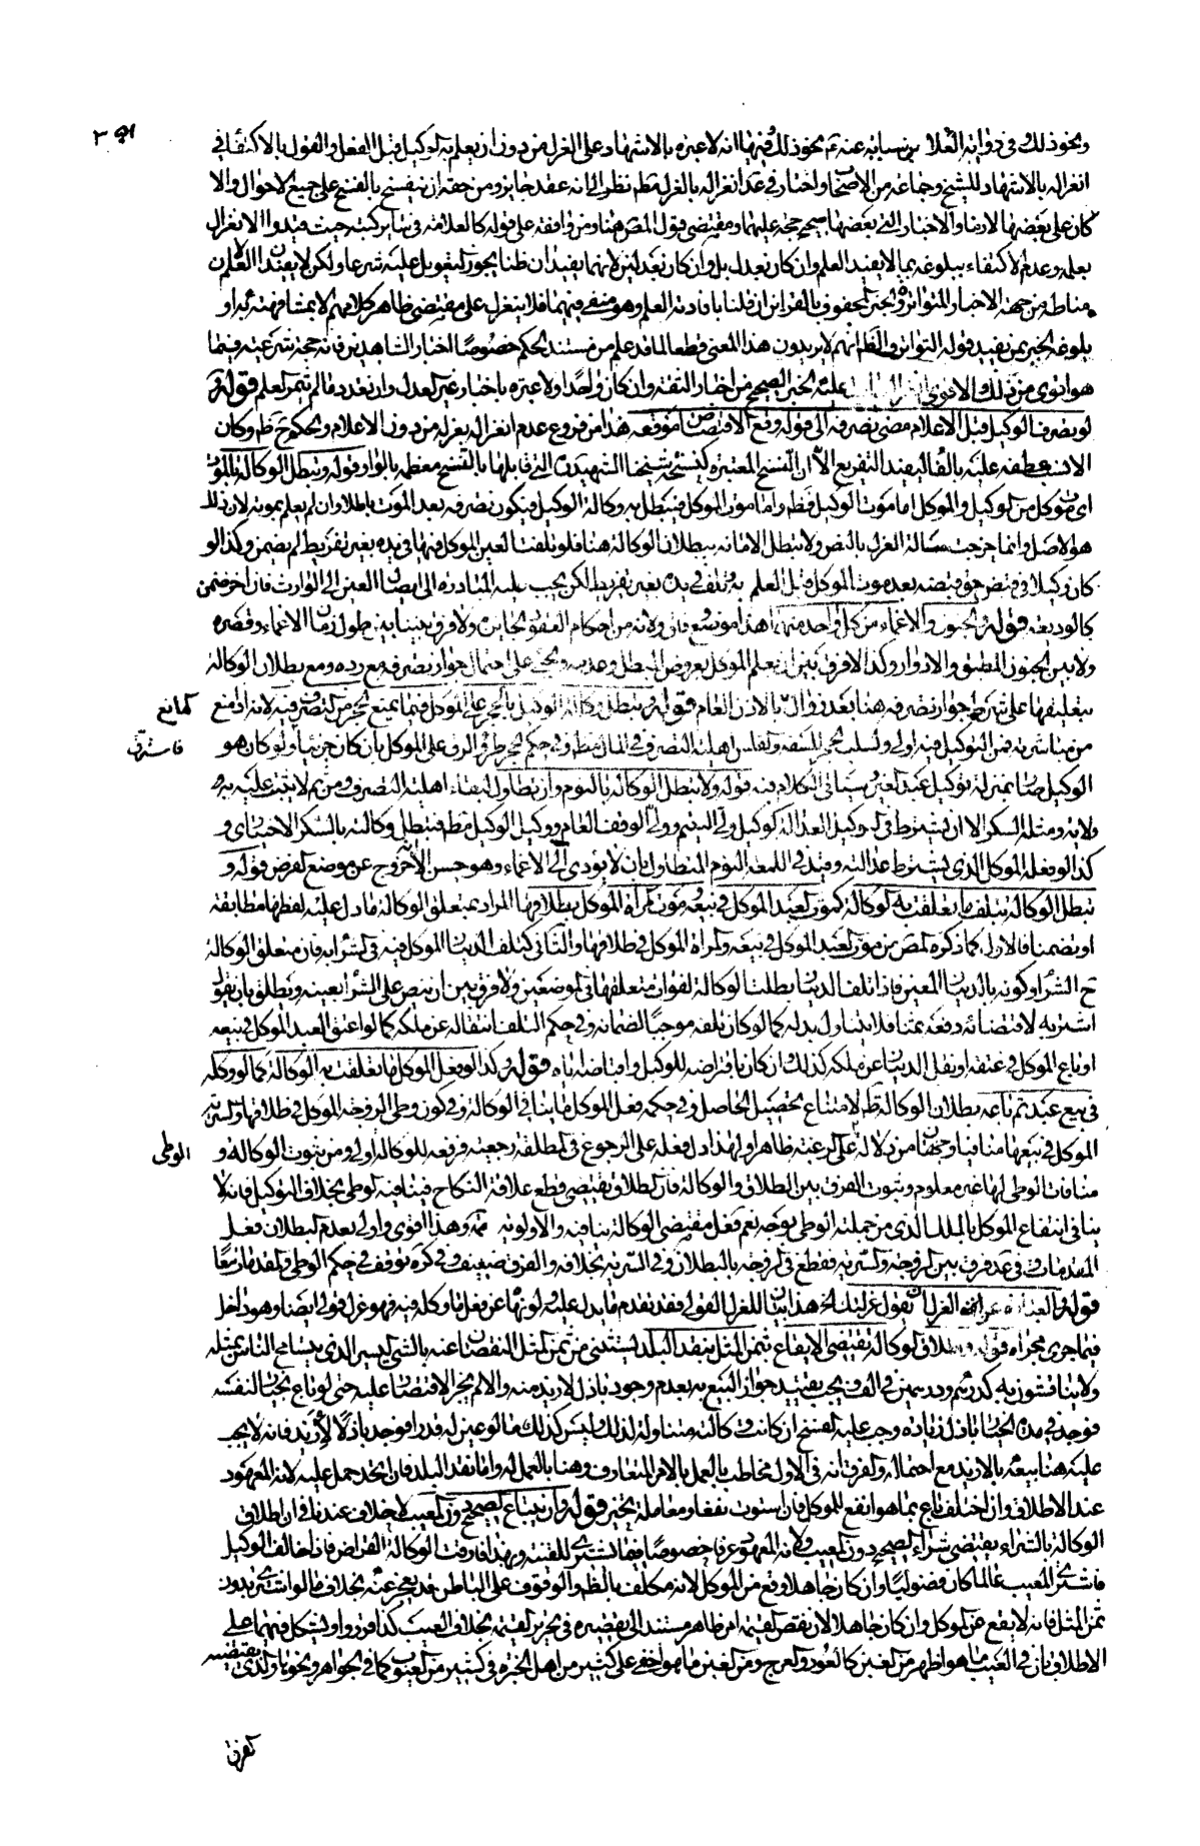 ونحو ذلك في رواية العلا بن سيابة عنه ع نحو ذلك وفيها انه لا عبرة بالاشهاد على العزل من دون ان يعلم به الوكيل قبل الفعل والقول بالاكتفاء في
انعزاله بالاشهاد للشيخ وجماعة من الاصحاب واختار في عد انعزاله بالعزل مطم نظرا الى انه عقد جايز ومن حقه ان ينفسخ بالفسخ على جميع الاحوال والا
كان على بعضها لازما والاخبار التي بعضها صحيح حجة عليهما ومقتضى قول المص هنا ومن وافقه على قوله كالعلامة في ساير كتبه حيث قيدوا الانعزال
بعلمه وعدم الاكتفاء ببلوغه بما لا يفيد العلم وان كان بعدل بل وان كان بعدلين لانهما يفيدان ظنا يجوز التعويل عليه شرعا ولكن لا يفيدان العلم لان
مناطه من جهة الاخبار المتواتر والخبر المحفوف بالقراين ان قلنا بافادته العلم وهو منفي فيهما فلا ينعزل على مقتضى ظاهر كلامهم الا بمشافهته به او
بلوغه الخبر بمن يفيد قوله التواتر والظ انهم لا يريدون هذا المعنى قطعا لما قد علم من مستند الحكم خصوصا اخبار الشاهدين فانه حجة شرعية فيما
هو اقوى من ذلك والاقوى عليه الخبر الصحيح من اخبار الثقة وان كان واحدا ولا عبرة باخبار غير العدل وان تعدد ما لم يثمر العلم قوله و
لو تصرف الوكيل قبل الاعلام مضى تصرفه الى قوله وقع الاقتصاص موقعه هذا من فروع عدم انعزاله بعزله من دون الاعلام والحكم ح ظم وكان
الانسب عطفه عليه بالفاء ليفيد التفريع الا ان النسخ المعتبرة كنسخة شيخنا الشهيد ره التي قابلها بالنسخ معظمه بالواو قوله وتبطل الوكالة بالموت
اي موت كل من الوكيل والموكل اما موت الوكيل فظم واما موت الموكل فتبطل به وكالة الوكيل فيكون تصرفه بعد الموت باطلا وان لم يعلم بموته لان ذلك
هو الاصل وانما خرجت مسالة العزل بالنص ولا تبطل الامانة ببطلان الوكالة هنا فلو تلفت العين الموكل فيها في يده بغير تفريط لم يضمن وكذا لو
كان وكيلا في قبض حق فقبضه بعد موت الموكل قبل العلم به وتلف في يده بغير تفريط لكن يجب عليه المبادرة الى ايصال العين الى الوارث فان اخر ضمن
كالوديعة قوله وبالجنون والاغماء من كل واحد منهما هذا موضع وفاق ولانه من احكام العقود الجايزة ولا فرق عندنا بين طول زمان الاغماء وقصره
ولا بين الجنون المطبق والادوار وكذا لا فرق بين ان يعلم الموكل بعروض المبطل وعدمه ويجيء على احتمال جواز تصرفه مع رده ومع بطلان الوكالة
بتعليقها على شرط جواز تصرفه هنا بعد زوال بالاذن العام قوله وتبطل وكالة الوكيل بالحجر على الموكل فيما يمنع الحجر من التصرف فيه لانه اذا منع
كمانع
من مباشرته فمن التوكيل فيه اولى والسلب الحجر للسفه والفلس اهلية التصرف في المال مطم وفي حكم الحجر طرو الرق على الموكل بان كان حربيا ولو كان هو
فاسترق
الوكيل صار بمنزلة توكيل عبد الغير وسياتي الكلام فيه قوله ولا تبطل الوكالة بالنوم وان تطاول لبقاء اهلية التصرف ومن ثم لا يثبت عليه به
ولاية ومثله السكر الا ان يشترط في الوكيل العدالة كوكيل ولي اليتيم وولي الوقف العام ووكيل الوكيل مطم فتبطل وكالته بالسكر الاختياري و
كذا لو فعله الموكل الذي يشترط عدالته وقيد في اللمعة النوم المتطاول بان لا يؤدي الى الاغماء وهو حسن الا انه خروج عن موضع الفرض قوله و
تبطل الوكالة بتلف ما تعلقت به الوكالة كموت العبد الموكل في بيعه وموت المراة الموكل بطلاقها المراد بمتعلق الوكالة ما دل عليه لفظها مطابقة
او تضمنا فالاول كما ذكره المص من موت العبد الموكل في بيعه والمراة الموكل في طلاقها والثاني كتلف الدينار الموكل فيه في الشراء به فان متعلق الوكالة
ح الشراء وكونه بالدينار المعين فاذا تلف الدينار بطلت الوكالة لفوات متعلقها في الموضعين ولا فرق بين ان ينص على الشراء بعينه ويطلق بان يقول
اشتر به لاقتضائه دفعه ثمنا فلا يتناول بدله كما لو كان تلفه موجبا لضمانه وفي حكم التلف انتقاله عن ملكه كما لو اعتق العبد الموكل في بيعه
او باع الموكل في عتقه او نقل الدينار عن ملكه كذلك وان كان باقراضه للوكيل واقباضه اياه قوله وكذا لو فعل الموكل ما تعلقت به الوكالة كما لو وكله
في بيع عبد ثم باعه بطلان الوكالة ظم لامتناع تحصيل الحاصل وفي حكمه فعل الموكل ما ينافي الوكالة وفي كون وطي الزوجة الموكل في طلاقها والسرية
الموكل في بيعها منافيا وجهان من دلالته على الرغبة ظاهرا ولهذا دل فعله على الرجوع في المطلقة رجعية فرفعه للوكالة اولى ومن ثبوت الوكالة و
الوطي
منافات الوطي لها غير معلوم وثبوت الفرق بين الطلاق والوكالة فان الطلاق يقتضي قطع علاقة النكاح فينافيه الوطي بخلاف التوكيل فانه لا
ينافي انتفاع الموكل بالملك الذي من جملته الوطي بوجه نعم فعل مقتضى الوكالة ينافيه والاولوية مم وهذا اقوى واولى بعدم البطلان فعل
المقدمات وفي عد فرق بين الزوجة والسرية فقطع في الزوجة بالبطلان وفي السرية بخلافه والفرق ضعيف وفي كره توقف في حكم الوطي والمقدمات معا
قوله والعبارة عن العزل ان يقول عزلتك الخ هذا بيان للعزل القولي فقد تقدم ما يدل عليه ولو نهاه عن فعل ما وكله فيه فهو عزل قولي ايضا وهو داخل
فيما جرى مجراه قوله واطلاق الوكالة يقتضي الابتياع بثمن المثل بنقد البلد يستثنى من ثمن المثل النقصان عنه بالشيء اليسير الذي يتسامح الناس بمثله
ولا يناقشون به كدرهم ودرهمين في الف ويجب تقييد جواز البيع به بعدم وجود باذل لازيد منه والا لم يجز الاقتصار عليه حتى لو باع بخيار لنفسه
فوجد في مدة الخيار باذل زيادة وجب عليه الفسخ ان كانت وكالته متناولة لذلك وليس كذلك ما لو عين له قدرا فوجد باذلا لازيد فانه لا يجب
عليه هنا بيعه بالازيد مع احتماله والفرق انه في الاول مخاطب بالعمل بالامر المتعارف وهنا بالعمل له واما نقد البلد فان اتحد حمل عليه لانه المعهود
عند الاطلاق وان اختلف باع بما هو انفع للموكل فان استوت نفعا ومعاملة تخير قوله وان يبتاع الصحيح دون المعيب لا خلاف عندنا في ان اطلاق
الوكالة بالشراء يقتضي شراء الصحيح دون المعيب ولانه المعهود عرفا خصوصا فيما يشترى للقنية وبهذا فارقت الوكالة القراض فاذا خالف الوكيل
فاشترى المعيب عالما كان فضوليا وان كان جاهلا وقع من الموكل لانه مكلف بالظاهر والوقوف على الباطن قد يعجز عنه بخلاف ما لو اشترى بدون
ثمن المثل فانه لا يقع عن الموكل وان كان جاهلا لان نقص القيمة امر ظاهر مستند الى تقصيره في تحرير القيمة بخلاف العيب كذا قرروا ويشكل فيهما على
الاطلاق بان في العيب ما هو اظهر من الغبن كالعور والعرج ومن الغبن ما هو اخفى على كثير من اهل الخبرة في كثير من العيوب كما في الجواهر ونحوها والذي يقتضيه
الفرق